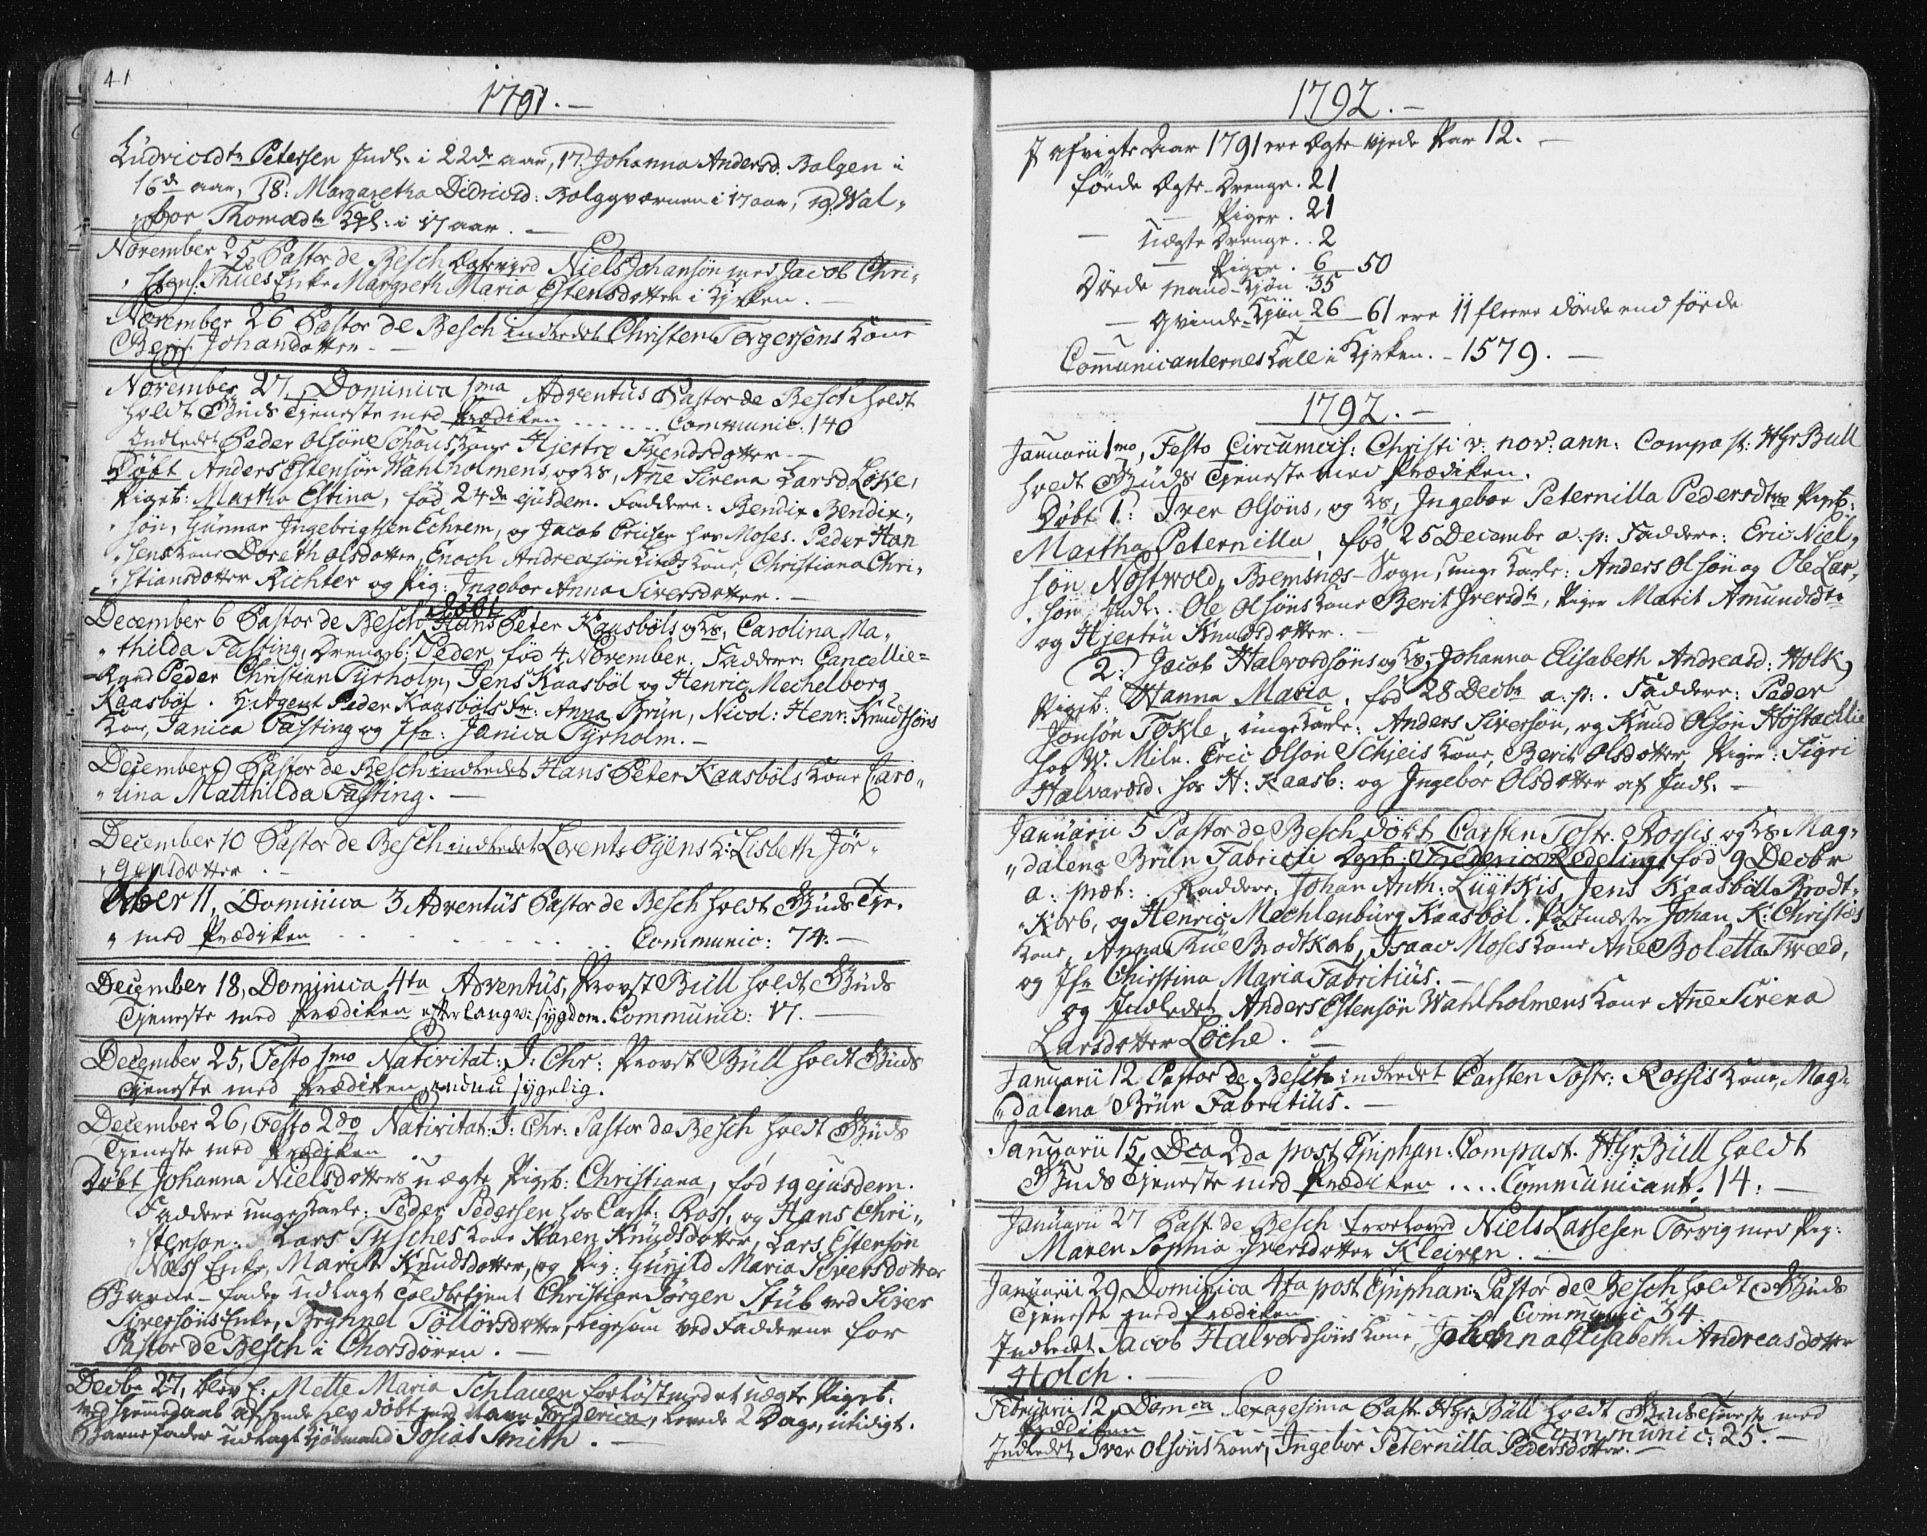 41
1791.
Ludvicdtr Petersen Indl. i 22de aar, 17. Johanna Andersd. Bolgen i
16de aar, 18. Margaretha Didricsd: Bolggværnen i 17 aar, 19. Wal„
„bor Thomædtr i 17 aar.
November 25 Pastor de Besch Egtevied Niels Johansøn med Jacob Chri„
„stens. Thues Enke Margreth Maria Estensdotter i Kirken.
November 26 Pastor de Besch indledet Christen Torgersens Kone
Berit Johansdotter.
November 27, Dominica 1ma Adventus Pastor de Besch holdt
holdt Guds Tjeneste med Prædiken ....... Communic: 140
Indledet Peder Olsøns Schous Kone Hjertre Svendsdotter
Døbt Anders Estensøn Wahlholmens, og Hs, Ane Sirena Larsd. Løke,
Pigeb: Martha Estina, fød 24de ejusdem. Faddere: Bendix Bendix„
„søn, Gunnar Ingebrigtsen Echrem, og Jacob Eriksen hos Moses. Peder Han„
„sens Kone Doreth Olsdotter, Enoch Andreasøn Lunds Kone, Christiana Chri„
„stiansdotter Richter og Pig: Ingebor Anna Siversdotter.
December 6 Pastor de Besch døbt Hans Peter Kaasbøls og Hs, Carolina Ma„
„thilda Fasting, Drengeb: Peder fød 4 November. Faddere: Cancellie=
Raad Peder Christian Tyrholm, Jens Kaasbøl og Henric Mechelborg
Kaasbøl. H: Agent Peder Kaasbøls Fr: Anna Brün, Nicol: Henr: Knudtsøns
Kone, Janica Fasting og Jfr: Janica Tyrholm.
December 9 Pastor de Besch indledet Hans Peter Kaasbøls Kone Caro„
„lina Matthilda Fasting.
December 10 Pastor de Besch indledet Lorents Øyens K: Lisbeth Jør„
„gensdotter.
Xber 11, Dominica 3 Adventus Pastor de Besch holdt Guds Tje.
„ med Prædiken ............ Communic: 74.
December 18, Dominica 4ta Adventus, Provst Bull holdt Guds
Tjeneste med Prædiken efter langv: sygdom. Communic: 17.
December 25, Festo 1mo Nativitat: J: Chr: Provst Bull holdt Guds
Tjeneste med Prædiken, endnu sygelig.
December 26, Festo 2do Nativitat: J: Chr: Pastor de Besch holdt Guds
Tjeneste med Prædiken
Døbt Johanna Nielsdotters uægte Pigeb: Christiana, fød 19 ejusdem.
Faddere unge Karle: Peder Pedersen hos Carst: Ross, og Hans Chri„
„stensøn. Lars Tysches Kone Karen Knudsdotter, Lars Estensøn
Næss Enke, Marit Knudsdotter, og Pig: Gunild Maria Siversdotter
Barne-fader udlagt Toldbetjent Christian Jørgen Stub ved Siver
Siversøns Enke, Beghnel Tollørsdotter, ligesom ved Fadderne for
Pastor de Besch i Chorsdøren.
Decbr 27, blev f: Mette Maria Schlauer forløst med et uægte Pigeb.
ved hjemmedaab af hende selv døbt med Navn Friderica, levede 2 Dage, utidigt.
Barnefader udlagt Kjøbmand Josias Smith.
1792.
I afvigte Aar 1791 ere Egte viede Par 12.
fødde Egte Drenge . 21
— Piger . 21
— Uægte Drenge . . 2
— Piger . 6 — 50
Døde Mand-Kjøn . 35
— Qvinde-Kjøn 26 — 61 ere 11 fleere døde end fødde
Communicanternes Tall i Kirken. — 1579.
1792.
Januarii 1mo, Festo Circumcis: Christi v: nov: ann: Compast. Hr Bull
holdt Guds Tjeneste med Prædiken.
Døbt 1: Iver Olsøns, og Hs, Ingebor Peternilla Pedersdtrs Pigeb:
Martha Peternilla, fød 25 Decembr a. p: Faddere: Eric Niel„
søn Nostwold, Bremsnæs-Sogn, unge Karle: Anders Olsøn og Ole Lar„
„søn Indl: Ole Olsøns Kone Berit Iversdtr, Piger Marit Amundsdtr
og Hjerten Knudsdotter.
2. Jacob Halvordsøns og Hs, Johanna Elisabeth Andreasd: Holk
Pigeb: Hanna Maria, fød 28 Decbr a. p:. Faddere: Peder
Jonsøn Tokle, unge Karle: Anders Siversøn, og Knud Olsøn Høstachlie
hos W. Miln. Eric Olsøn Schjeis Kone, Berit Olsdotter, Piger: Sigri
Halvorsd: hos H: Kaasb: og Ingebor Olsdotter af Indl.
Januarii 5 Pastor de Besch døbt Carsten Tostr: Rossis og Hs Mag„
„dalena Brün Fabricii Dgeb: Frederic Redeling, fød 9 Decbr
a: præt: . Faddere: Johan Anth: Lüytkis, Jens Kaasbøll Brodt„
„korb, og Henric Mechlenburg Kaasbøl. Postmæster Johan K: Christies
Kone, Anna Thue Brodtkorb, Isaac Moses Kone Ane Boletta Tweed,
og Jfr Christina Maria Fabritius.
og Indledet Anders Estensøn Wahlholmens Kone Ane Sirena
Larsdotter Löche.
Januarii 12 Pastor de Besch indledet Carsten Tostr: Rossis Kone, Mag„
„dalena Brün Fabritius.
Januarii 15, Dca 2da post Epiphan: Compast. Hr Bull holdt
Guds Tjeneste med Prædiken .... Communicant: 14.
Januarii 27 Past. de Besch trolovet Niels Larsesen Torvig med Pig:
Maren Sophia Iversdotter Kleiven.
Januarii 29 Dominica 4ta post Epiphan: Pastor de Besch holdt Guds
Tjeneste med Prædiken ........ Communic 34.
Indledet Jacob Halvordsøns Kone, Johanna Elisabeth Andreasdotter
Holch.
Februarii 12 Domca Sexagesima Past. Hr Bull holdt Guds Tjeneste med
Prædiken ........ Communic: 25.
Indledet Iver Olsøns Kone, Ingebor Peternilla Pedersdotter.